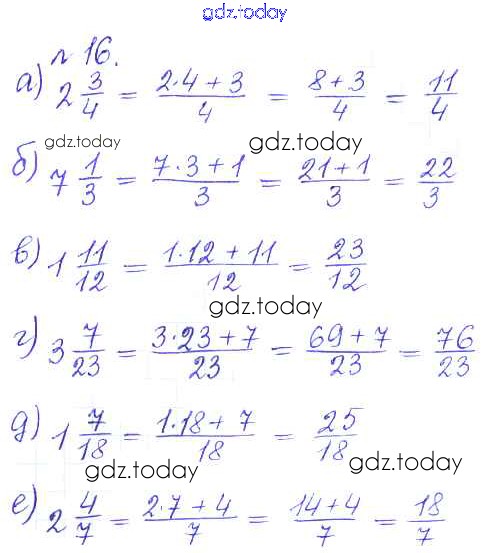 gdz.today
№ 16.
а) 2 3/4 = (2·4+3)/4 = (8+3)/4 = 11/4
gdz.today gdz.today
б) 7 1/3 = (7·3+1)/3 = (21+1)/3 = 22/3
в) 1 11/12 = (1·12+11)/12 = 23/12
gdz.today
г) 3 7/23 = (3·23+7)/23 = (69+7)/23 = 76/23
д) 1 7/18 = (1·18+7)/18 = 25/18
gdz.today gdz.today
е) 2 4/7 = (2·7+4)/7 = (14+4)/7 = 18/7